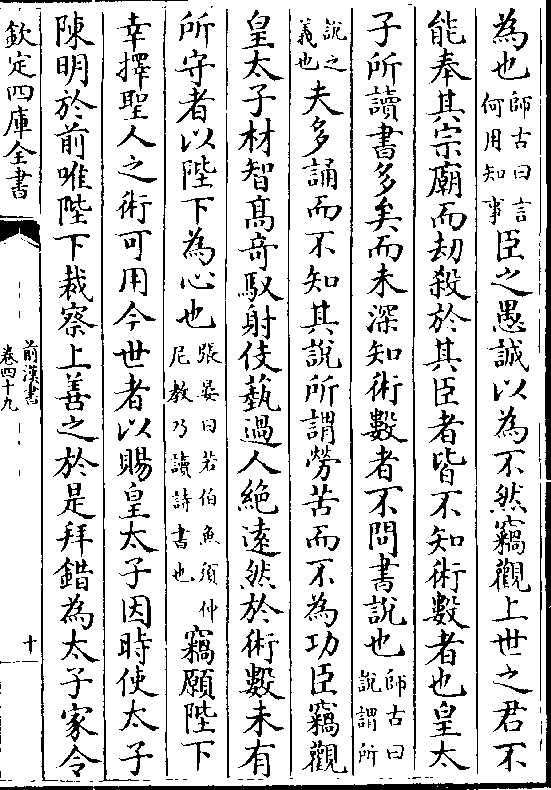 為也師古曰言何用知事臣之愚誠以為不然竊觀上世之君不
能奉其宗廟而劫殺於其臣者皆不知術數者也皇太
子所讀書多矣而未深知術數者不問書說也師古曰說謂所
說之義也夫多誦而不知其說所謂勞苦而不為功臣竊觀
皇太子材智髙竒馭射伎藝過人絶逺然於術數未有
所守者以陛下為心也張晏曰若伯魚須仲尼教乃讀詩書也竊願陛下
幸擇聖人之術可用今世者以賜皇太子因時使太子
陳明於前唯陛下裁察上善之於是拜錯為太子家令
欽定四庫全書
前漢書
卷四十九
十